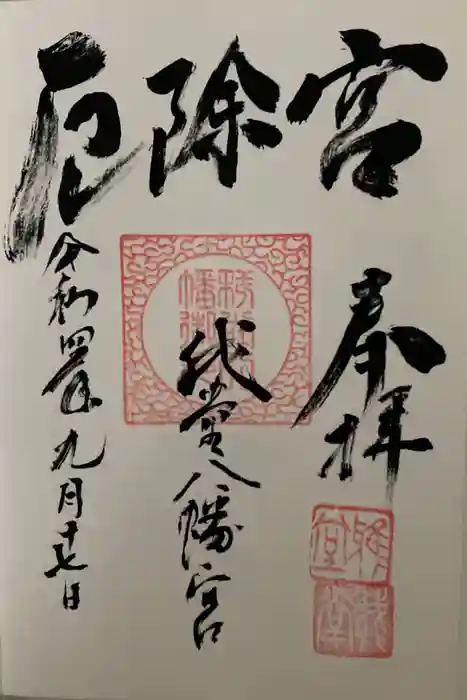 厄除宮
奉拝
我堂八幡宮
令和四年九月十七日